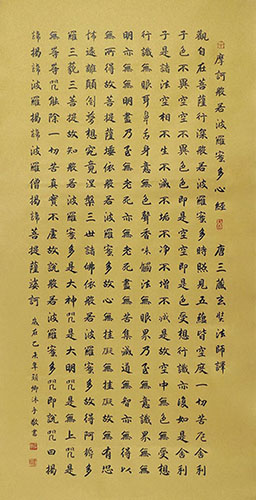 摩訶般若波羅蜜多心經 唐三藏玄奘法師譯
觀自在菩薩行深般若波羅蜜多時照見五蘊皆空度一切苦厄舍利
子色不異空空不異色色即是空空即是色受想行識亦復如是舍利
子是諸法空相不生不滅不垢不淨不增不減是故空中無色無受想
行識無眼耳鼻舌身意無色聲香味觸法無眼界乃至無意識界無無
明亦無無明盡乃至無老死亦無老死盡無苦集滅道無智亦無得以
無所得故菩提薩埵依般若波羅蜜多故心無挂礙無挂礙故無有恐
怖遠離顛倒夢想究竟涅槃三世諸佛依般若波羅蜜多故得阿耨多
羅三藐三菩提故知般若波羅蜜多是大神咒是大明咒是無上咒是
無等等咒能除一切苦真實不虛故說般若波羅蜜多咒即說咒曰揭
諦揭諦波羅揭諦波羅僧揭諦菩提薩婆訶 歲在乙未年 沐手敬書